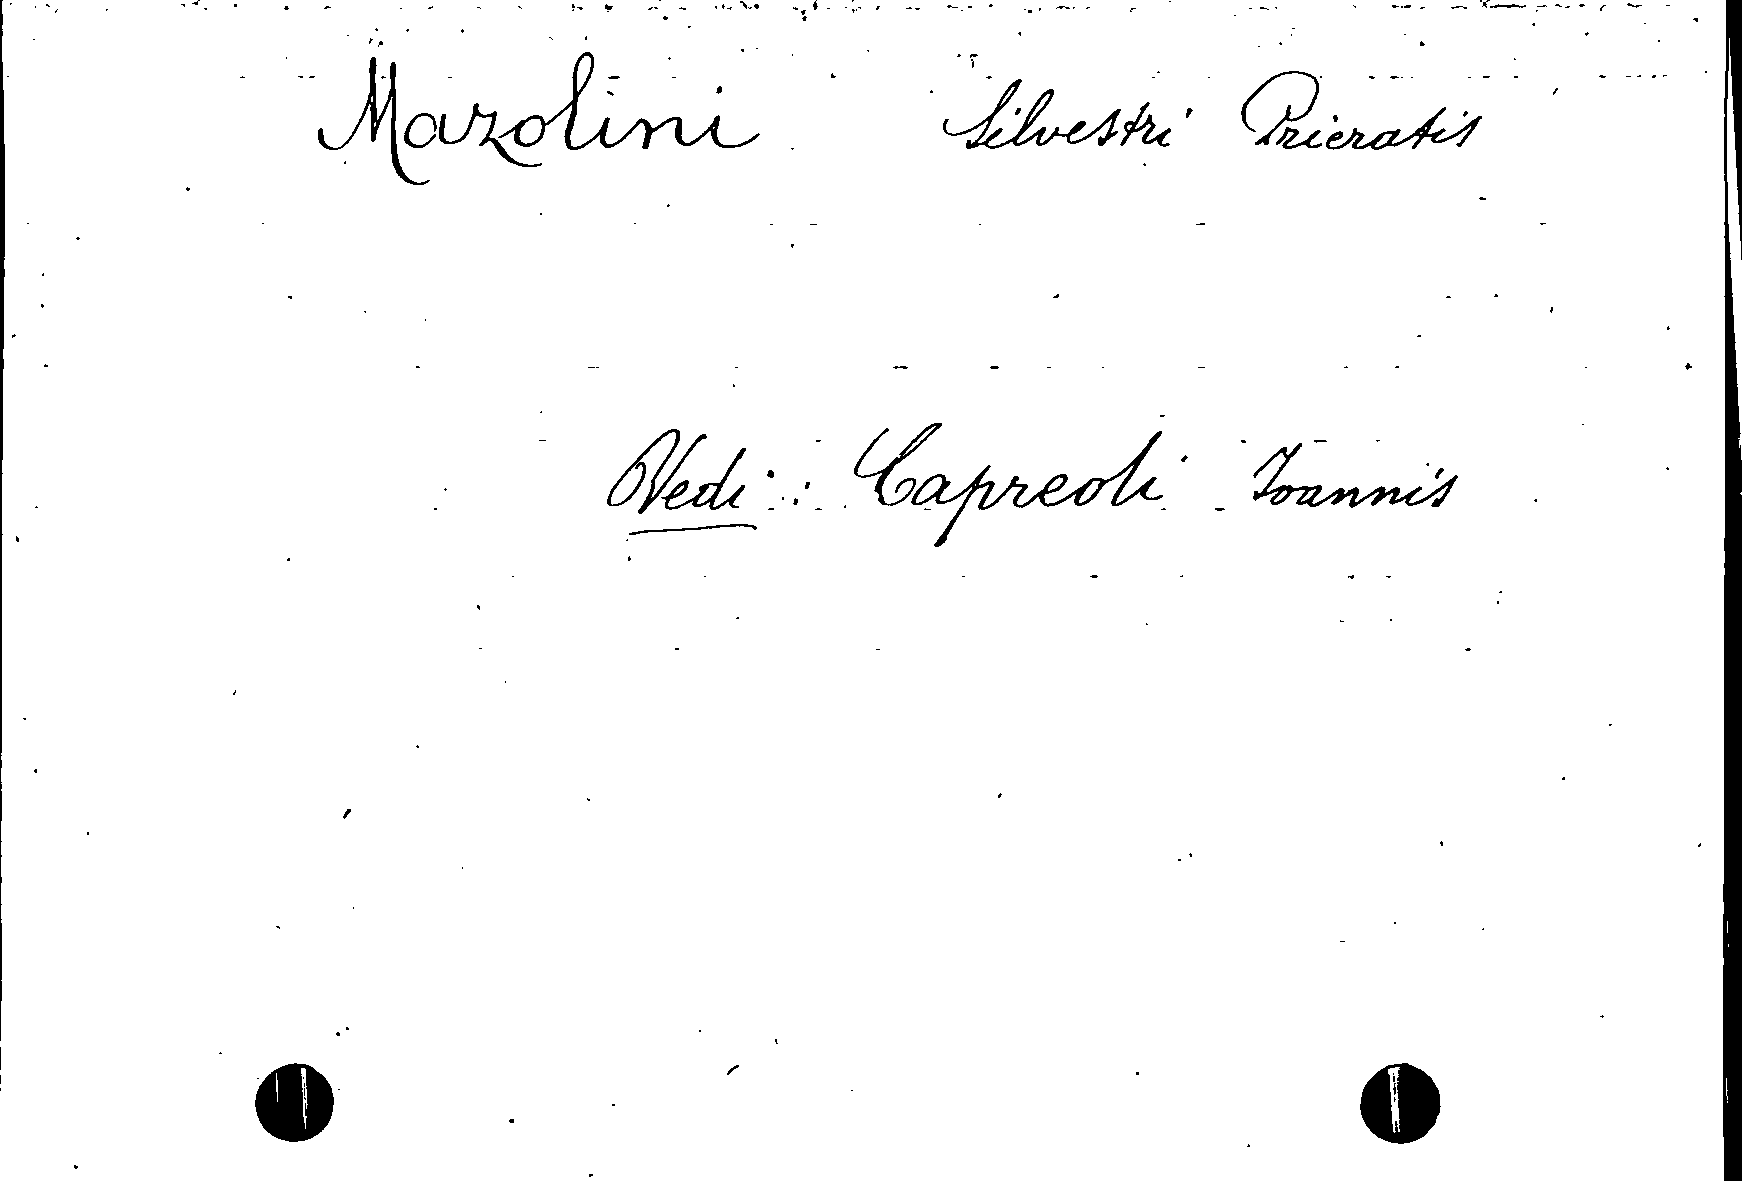 Mazolini Silvestri Prieratis
Vedi : Capreoli Ioannis